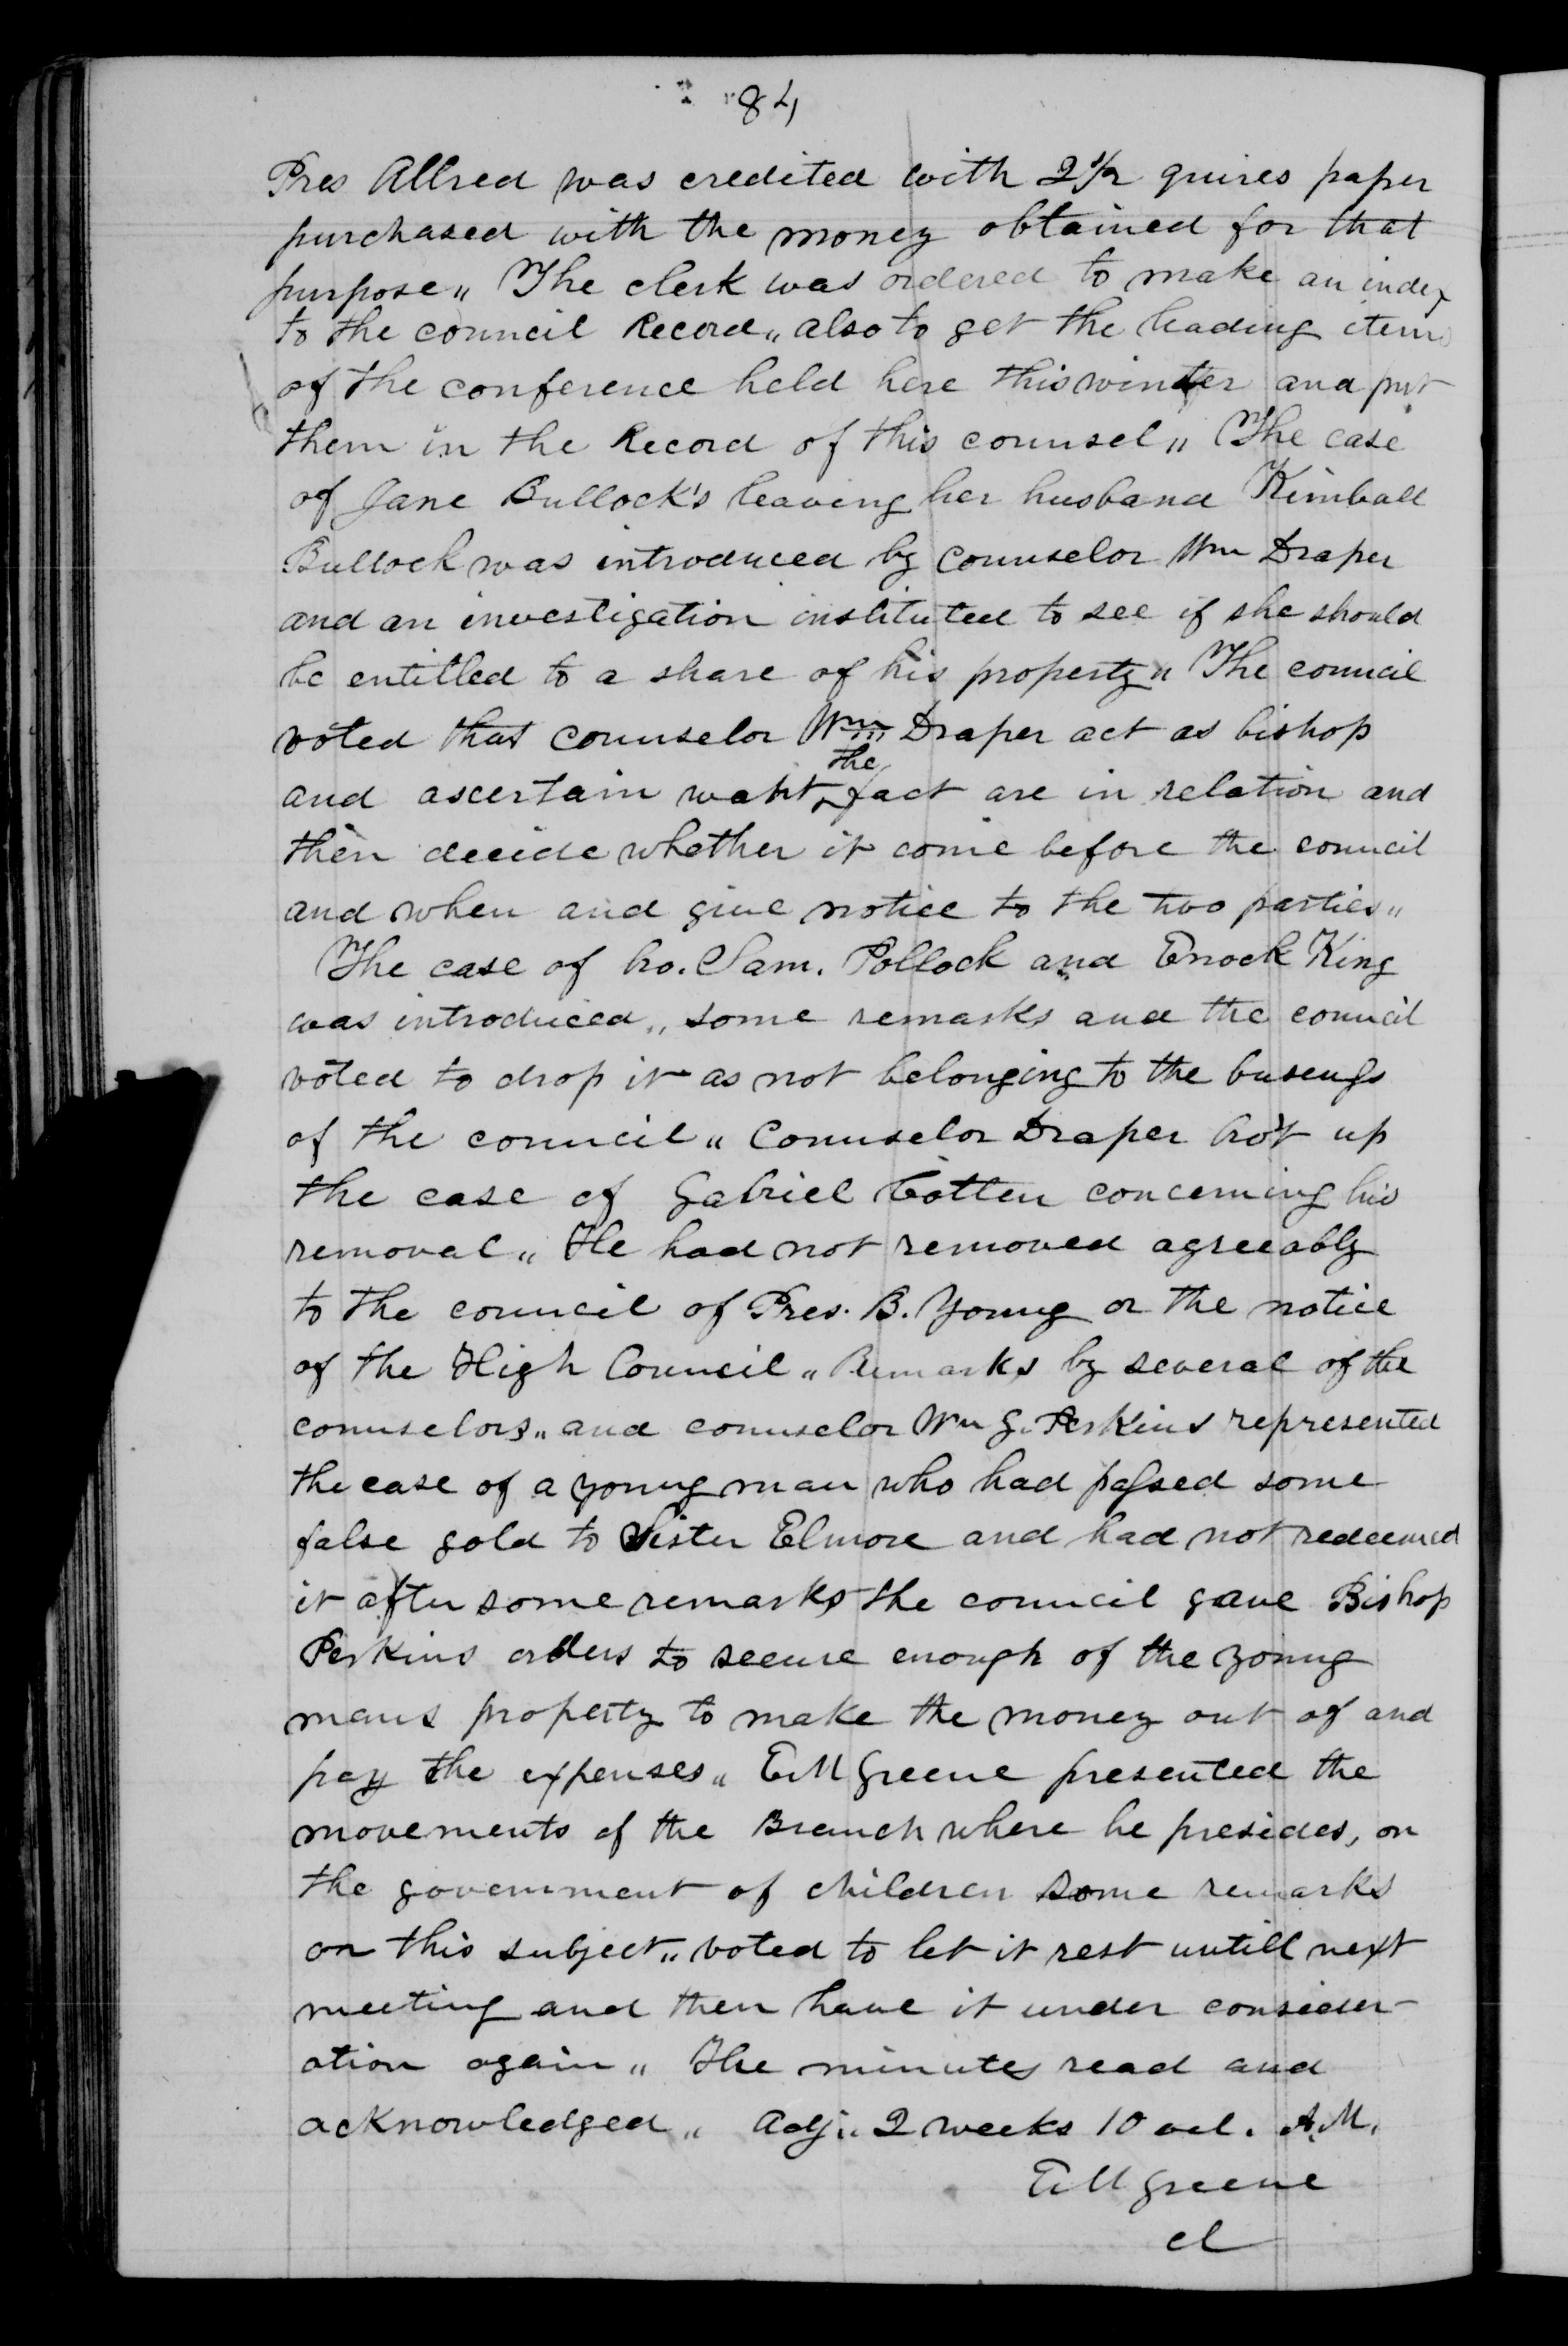 84
Pres Allred was credited with 2 1/2 quires paper
purchased with the money obtained for that
purpose„ The clerk was ordered to make an index
to the council Record„ also to get the leading items
of the conference held here this winter and put
them in the Record of this counsel„ The case
of Jane Bullock's leaving her husband Kimball
Bullock was introduced by counselor Wm Draper
and an investigation instituted to see if she should
be entitled to a share of his property„ The council
voted that counselor Wm Draper act as bishop
and ascertain waht the fact are in relation and
then decide whether it come before the council
and when and give notice to the two parties„
The case of bro. Sam. Pollock and Enock King
was introduced„ some remarks and the council
voted to drop it as not belonging to the buseness
of the council„ Counselor Draper bro't up
the case of Gabriel Cotten concerning his
removal„ He had not removed agreeably
to the council of Pres. B. Young or the notice
of the High Council„ Remarks by several of the
counselors„ and counselor Wm G. Perkins represented
the case of a young man who had passed some
false gold to Sister Elmore and had not redeemed
it after some remarks the council gave Bishop
Perkins orders to secure enough of the young
mans property to make the money out of and
pay the expenses„ E M Greene presented the
movements of the Branch where he presides, on
the government of children some remarks
on this subject„ voted to let it rest untill next
meeting and then have it under consider-
ation again„ The minutes read and
acknowledged„ Adj„ 2 weeks 10 ocl. A.M.
E M Greene
cl